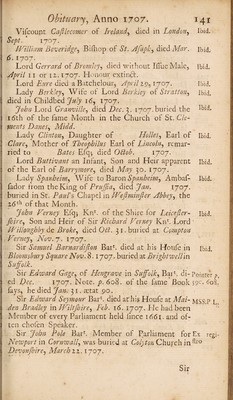 Obituary, Anno 1707. 141
Viscount Castlecomer of Ireland, died in London, Ibid.
Sept. 1707.
William Beveridge, Bishop of St. Asaph, died Mar. Ibid.
6. 1707.
Lord Gerrard of Bromley, died without Issue Male, Ibid.
April 11 or 12. 1707. Honour extinct.
Lord Eure died a Batchelour, April 29, 1707. Ibid.
Lady Berkley, Wife of Lord Berkley of Stratton, Ibid.
died in Childbed July 16, 1707.
John Lord Granville, died Dec. 3. 1707. buried the Ibid.
16th of the same Month in the Church of St. Cle-
ments Danes, Midd.
Lady Clinton, Daughter of Holles, Earl of Ibid.
Clare, Mother of Theophilus Earl of Lincoln, remar-
ried to Bates Esq; died Octob. 1707.
Lord Buttivant an Infant, Son and Heir apparent Ibid.
of the Earl of Barrymore, died May 30. 1707.
Lady Spanheim, Wife to Baron Spanheim, Ambas- Ibid.
sador from the King of Prussia, died Jan. 1707.
buried in St. Paul's Chapel in Westminster Abbey, the
26th of that Month.
John Verney Esq; Knt. of the Shire for Leicester- Ibid.
shire, Son and Heir of Sir Richard Verney Knt. Lord
Willoughby de Broke, died Oct. 31. buried at Compton
Verney, Nov. 7. 1707.
Sir Samuel Barnardiston Bart. died at his House in Ibid.
Bloomsbury Square Nov. 8. 1707. buried at Brightwell in
Suffolk.
Sir Edward Gage, of Hengrave in Suffolk, Bart. di-
ed Dec. 1707. Note p. 608. of the same Book
says, he died Jan. 31. ætat 90.
Sir Edward Seymour Bart. died at his House at Mai- MSS.P.L.
den Bradley in Wiltshire, Feb. 16. 1707. He had been
Member of every Parliament held since 1661. and of-
ten chosen Speaker.
Sir John Pole Bart. Member of Parliament for Ex regi-
Newport in Cornwall, was buried at Colyton Church in stro
Devonshire, March 22. 1707.
Sir